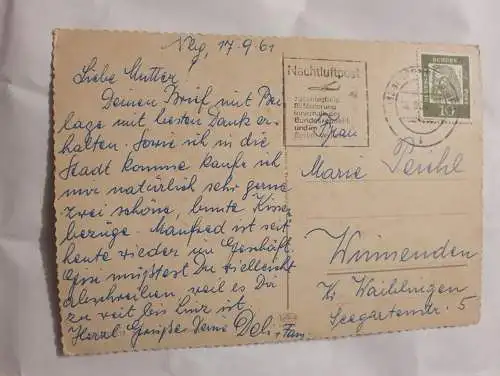 Nbg, 17.9.61
Liebe Mutter!
Deinen Brief mit Bei-
lage mit besten Dank er-
halten. Sowie ich in die
Stadt komme kaufe ich
mir natürlich sehr gerne
zwei schöne, bunte Kissen
bezüge. Manfred ist seit
heute wieder im Geschäft.
müßtest Du vielleicht
abschreiben, weil es Dir
zu weit bis Linz ist.
Herzl. Grüße Deine
Nachtluftpost
zuschlagfreie
Beförderung
innerhalb der
Bundesrepublik
und
Frau
Marie
Winnenden
Kr. Waiblingen
Seegartenstr. 5